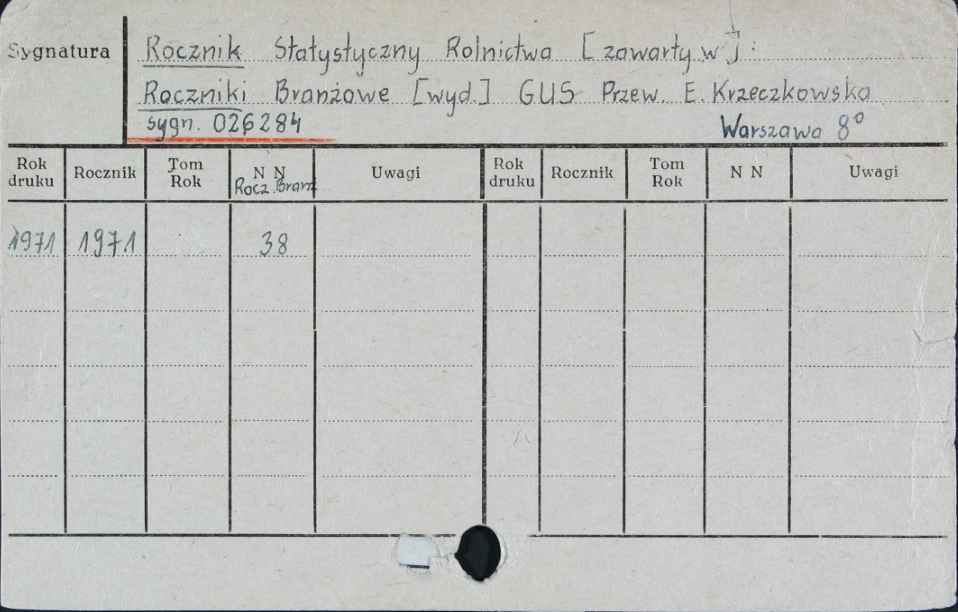 Sygnatura
Rocznik Statystyczny Rolnictwa [zawarty w]:
Roczniki Branżowe [wyd.] GUS Przew. E. Krzeczkowska
sygn. 026284 Warszawa 8°
Rok druku Rocznik Tom Rok N N Uwagi Rok druku Rocznik Tom Rok N N Uwagi
Rocz. Branż
1971 1971 38